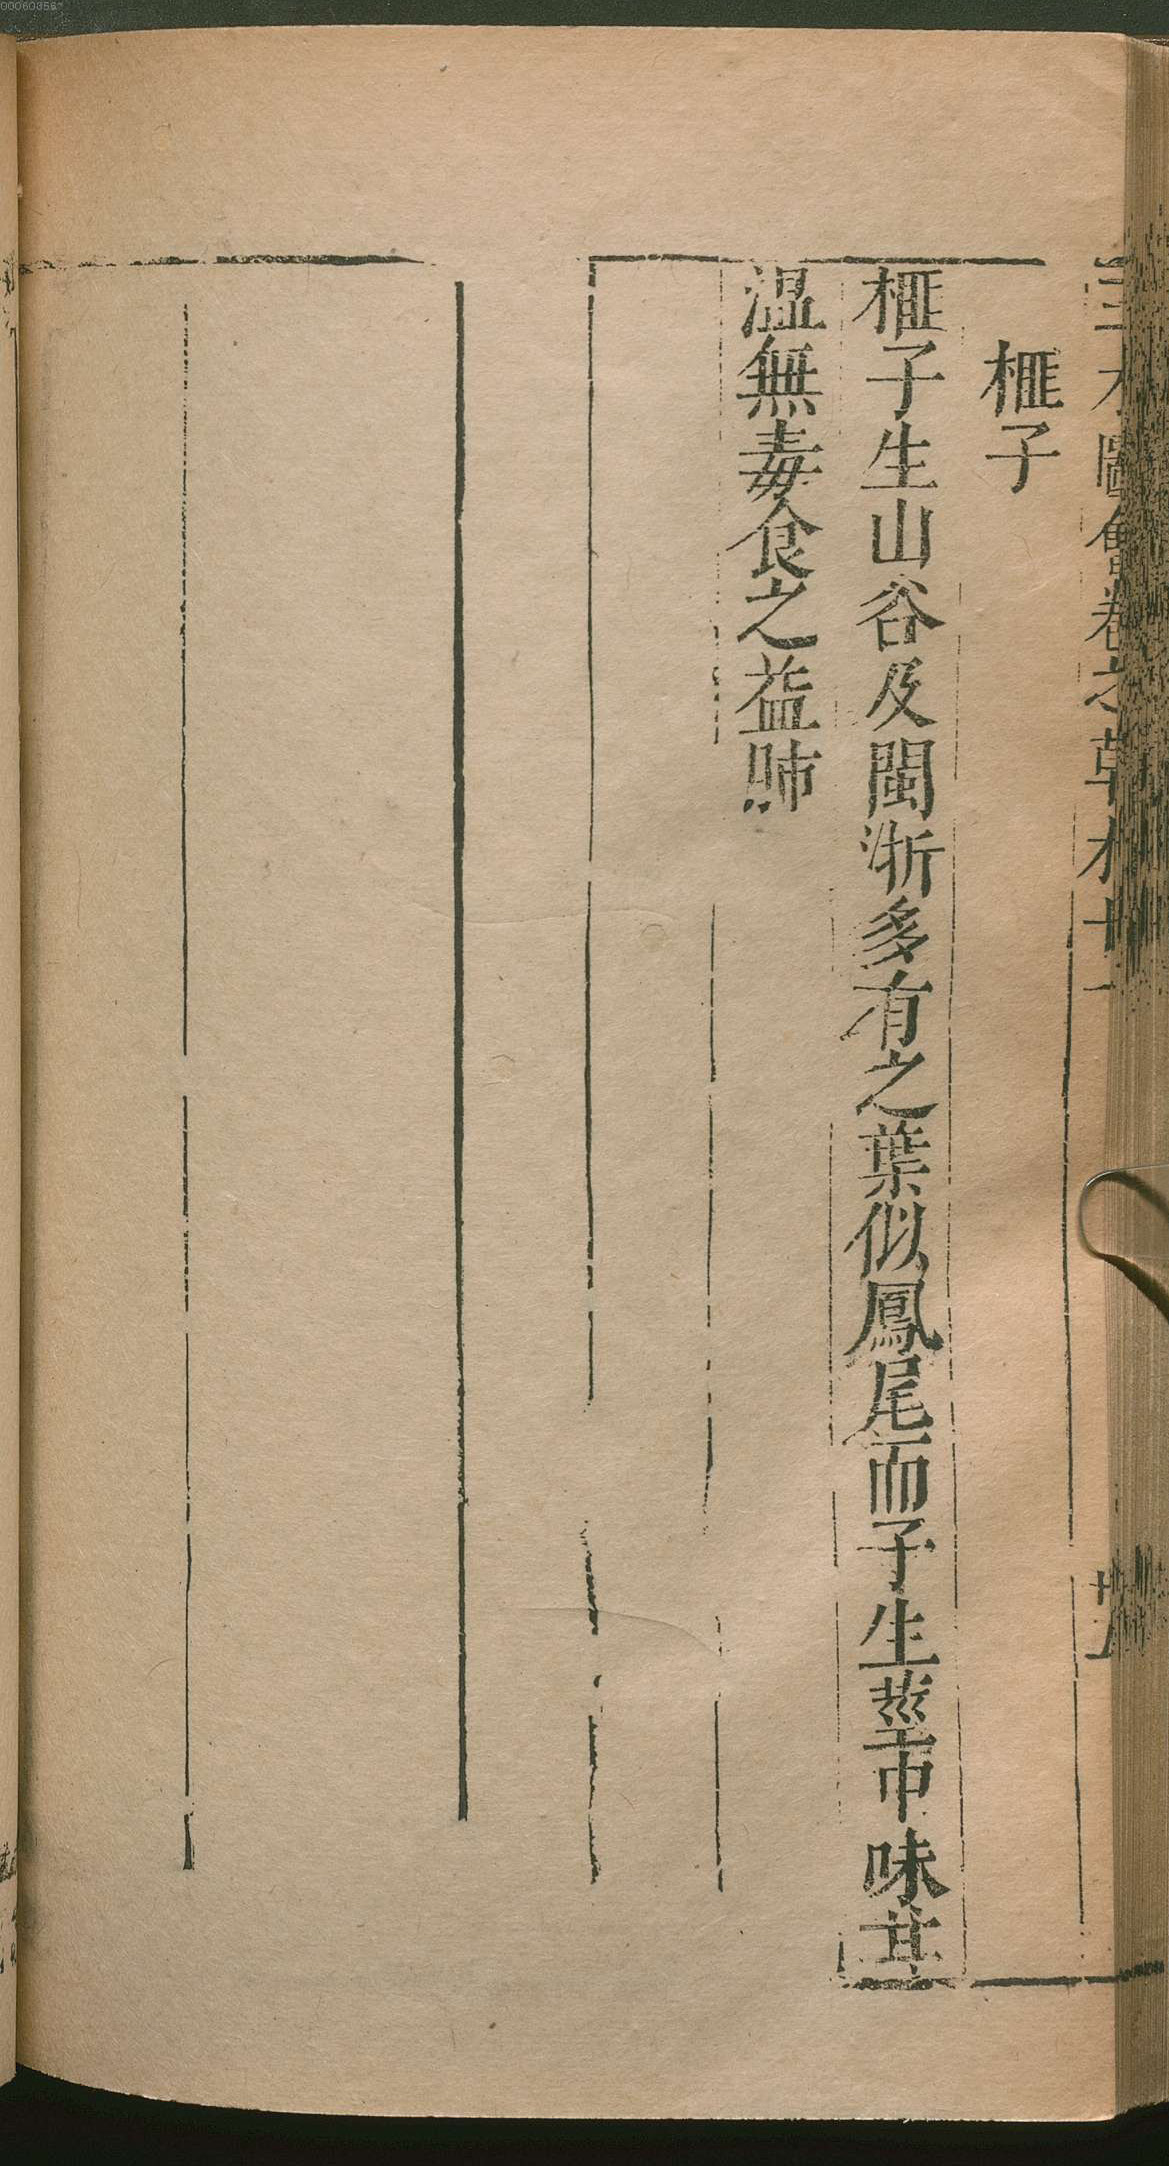 三才圖會卷之草木十一
榧子
榧子生山谷及閩浙多有之葉似鳳尾而子生莖中味甘
溫無毒食之益肺